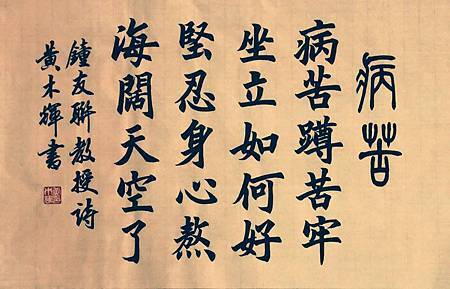 病苦
病苦蹲苦牢
坐立如何好
堅忍身心熬
海闊天空了
鐘友聯教授詩
黃木輝書